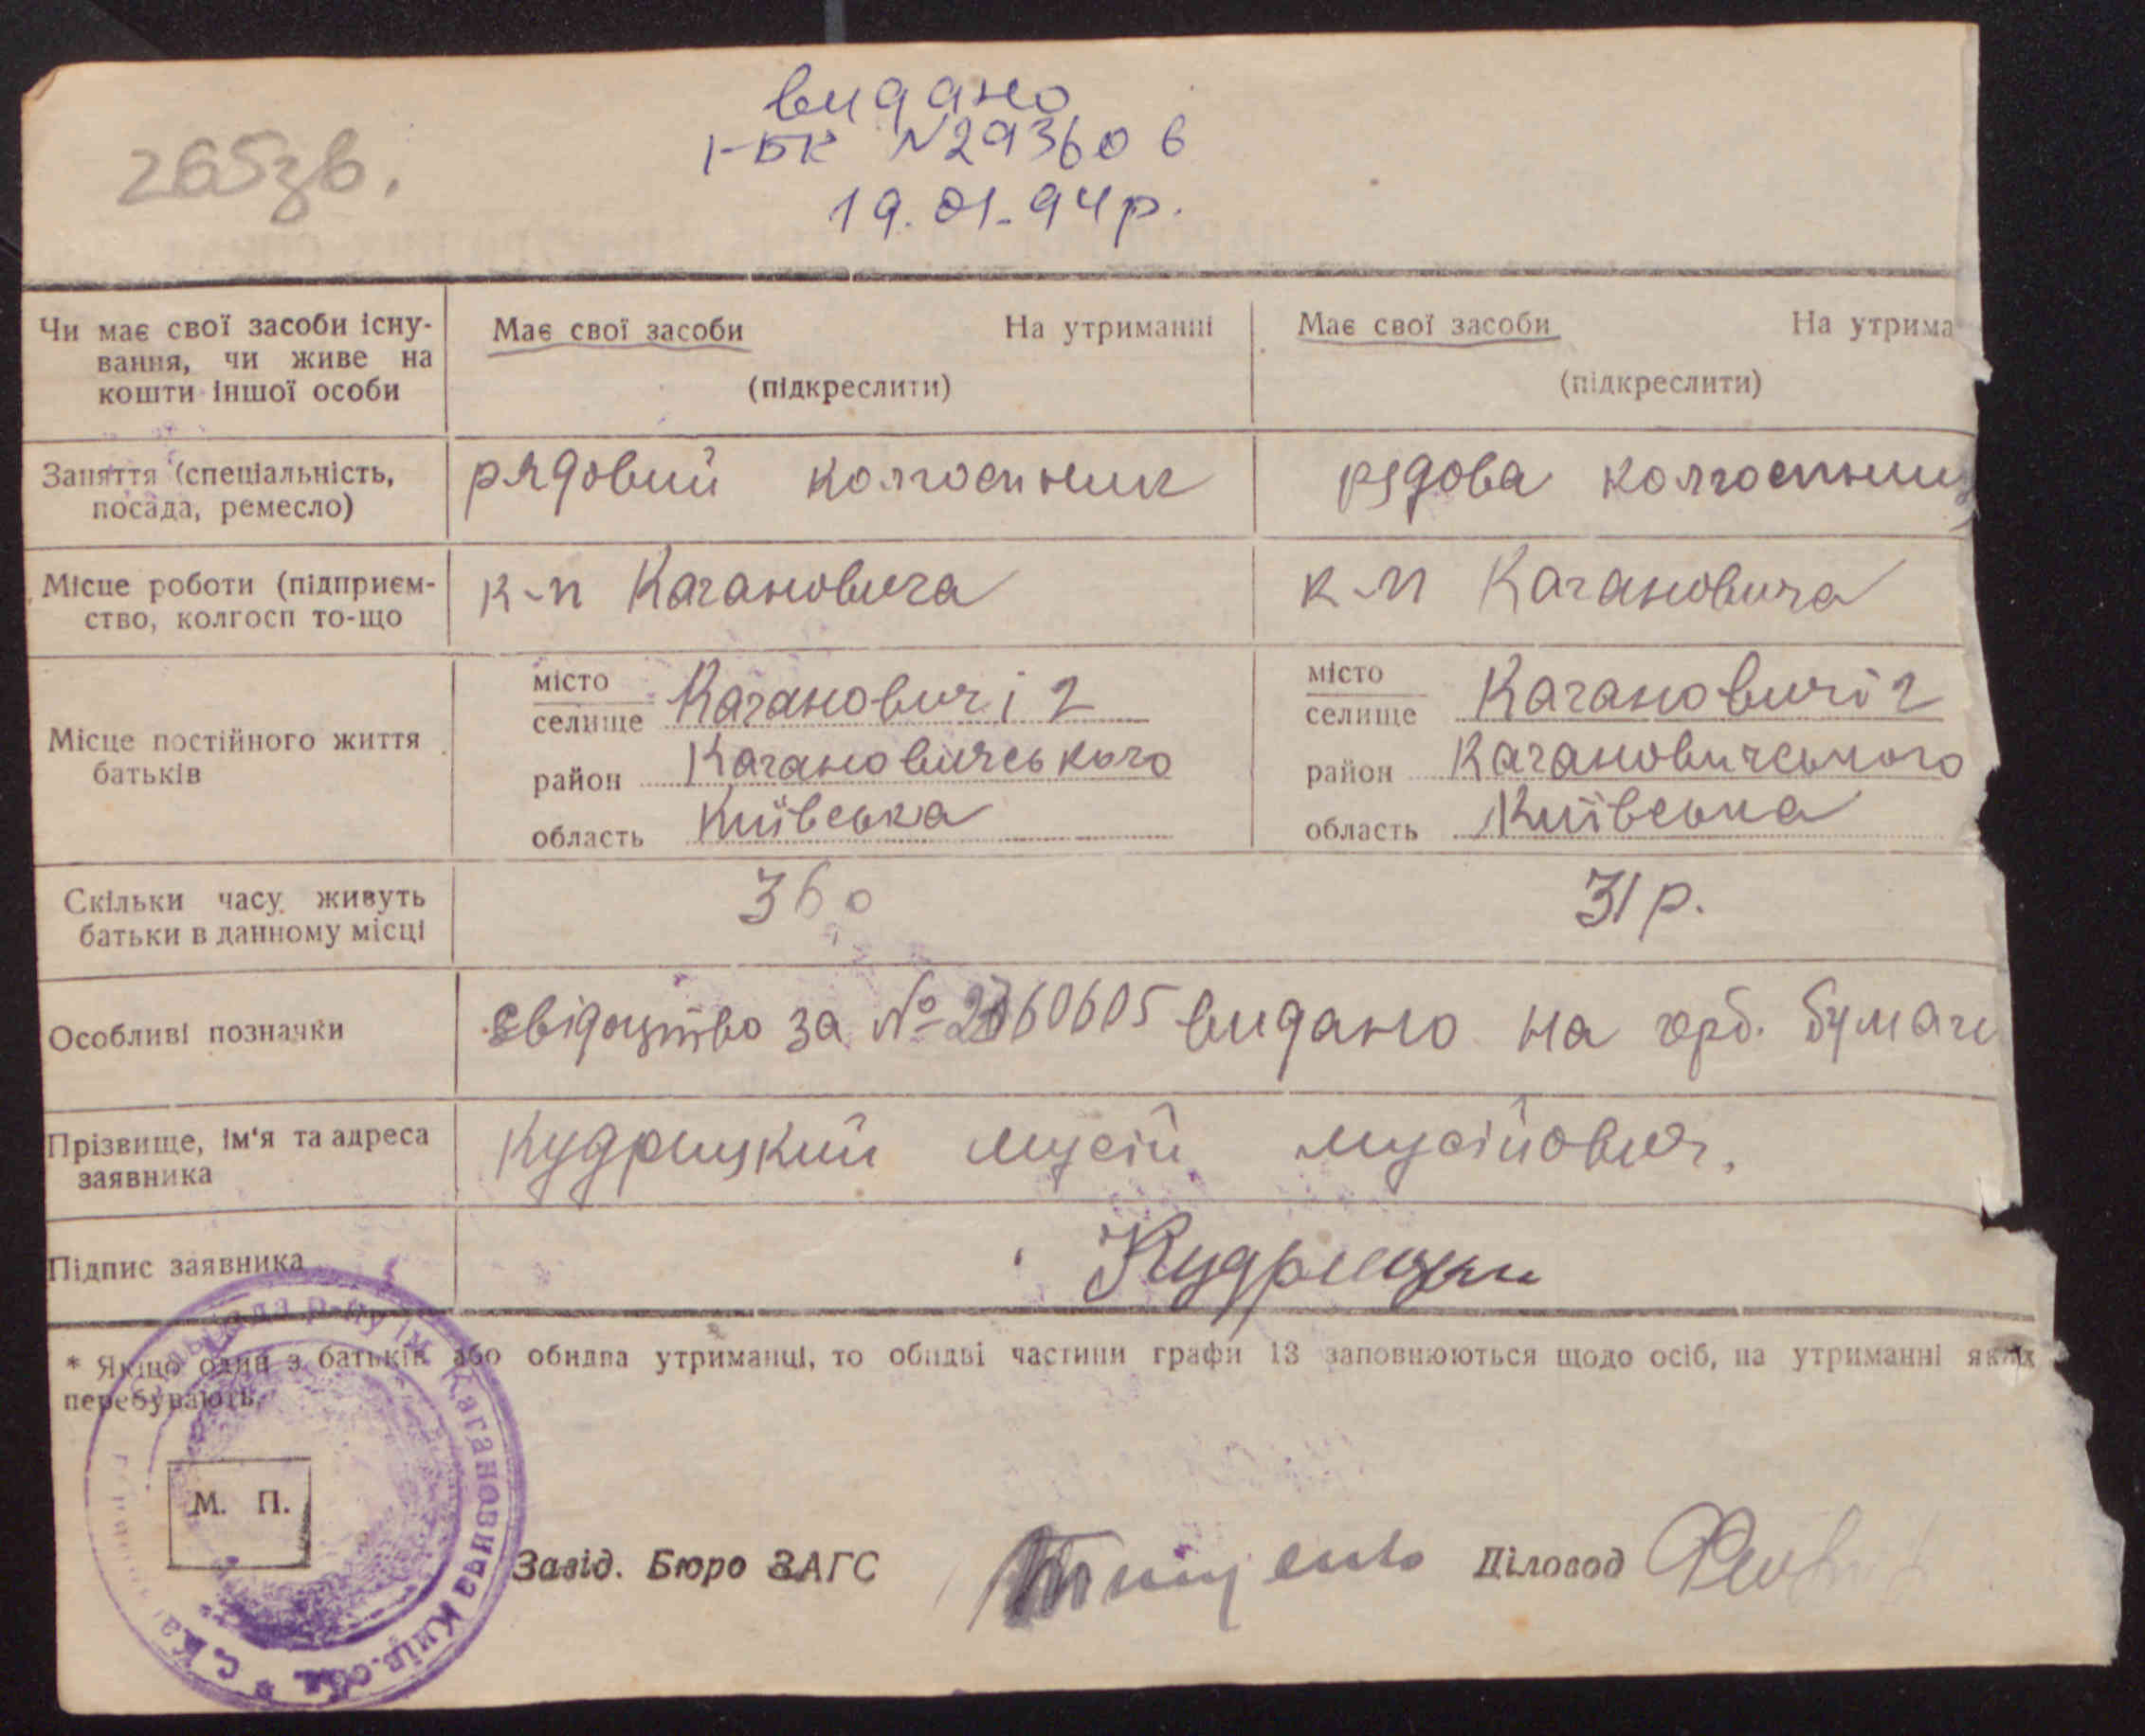 видано
І-БК N293606
265зв.
19.01.94р.
Чи має свої засоби існу-
вання, чи живе на
кошти іншої особи
Має свої засоби На утриманні
(підкреслити)
Має свої засоби На утрима
(підкреслити)
Заняття (спеціальність,
посада, ремесло)
рядовий колгоспник
рядова колгоспниц
Місце роботи (підприєм-
ство, колгосп то-що
к-п Кагановича
к-п Кагановича
Місце постійного життя
батьків
місто
селище Кагановичі 2
район Кагановичського
область Київська
місто
селище Кагановичі 2
район Кагановичського
область Київська
Скільки часу живуть
батьки в данному місці
36
31 р.
Особливі позначки
свідоцтво за № 60605 видано на горб. бумаги
Прізвище, ім'я та адреса
заявника
Кудрицкий мусій мусійович.
Підпис заявника
Кудрицкий
* Якщо один з батьків або обидва утриманці, то обидві частини графи 13 заповнюються щодо осіб, на утриманні яких
перебувають.
М. П.
р-ну ім. Кагановича Київ. обл. с. Ка
Завід. Бюро ЗАГС Діловод